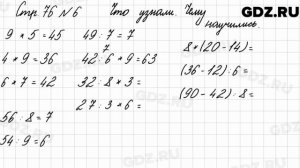 GDZ.RU
Стр. 76 N 6 Что узнали. Чему научились
9 × 5 = 45
4 × 9 = 36
6 × 7 = 42
56 : 8 = 7
54 : 9 = 6
49 : 7 = 7
7
42 : 6 * 9 = 63
32 : 8 * 3 =
27 : 3 * 6 =
8 * (20 - 14) =
(36 - 12) : 6 =
(90 - 42) : 8 =
GDZ.RU